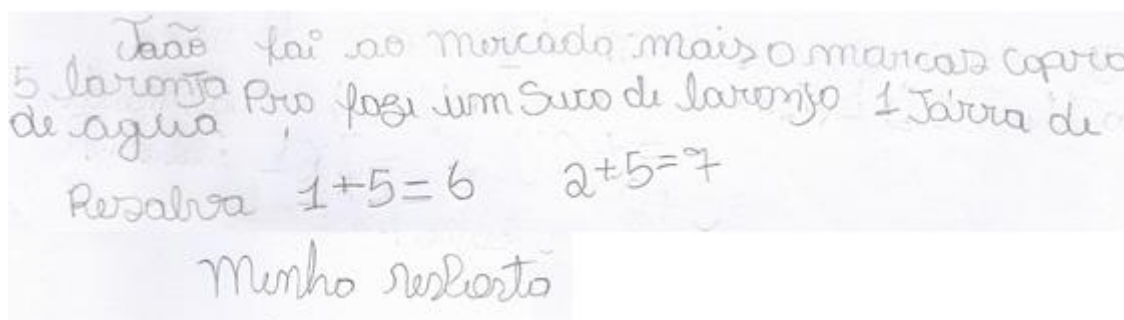 João fai ao mercado mais o marcos
5 laronja Pro fogi um Suco de laronjo 1 Jarra de
de agua
Resalva 1+5=6 2+5=7
Minho resposto